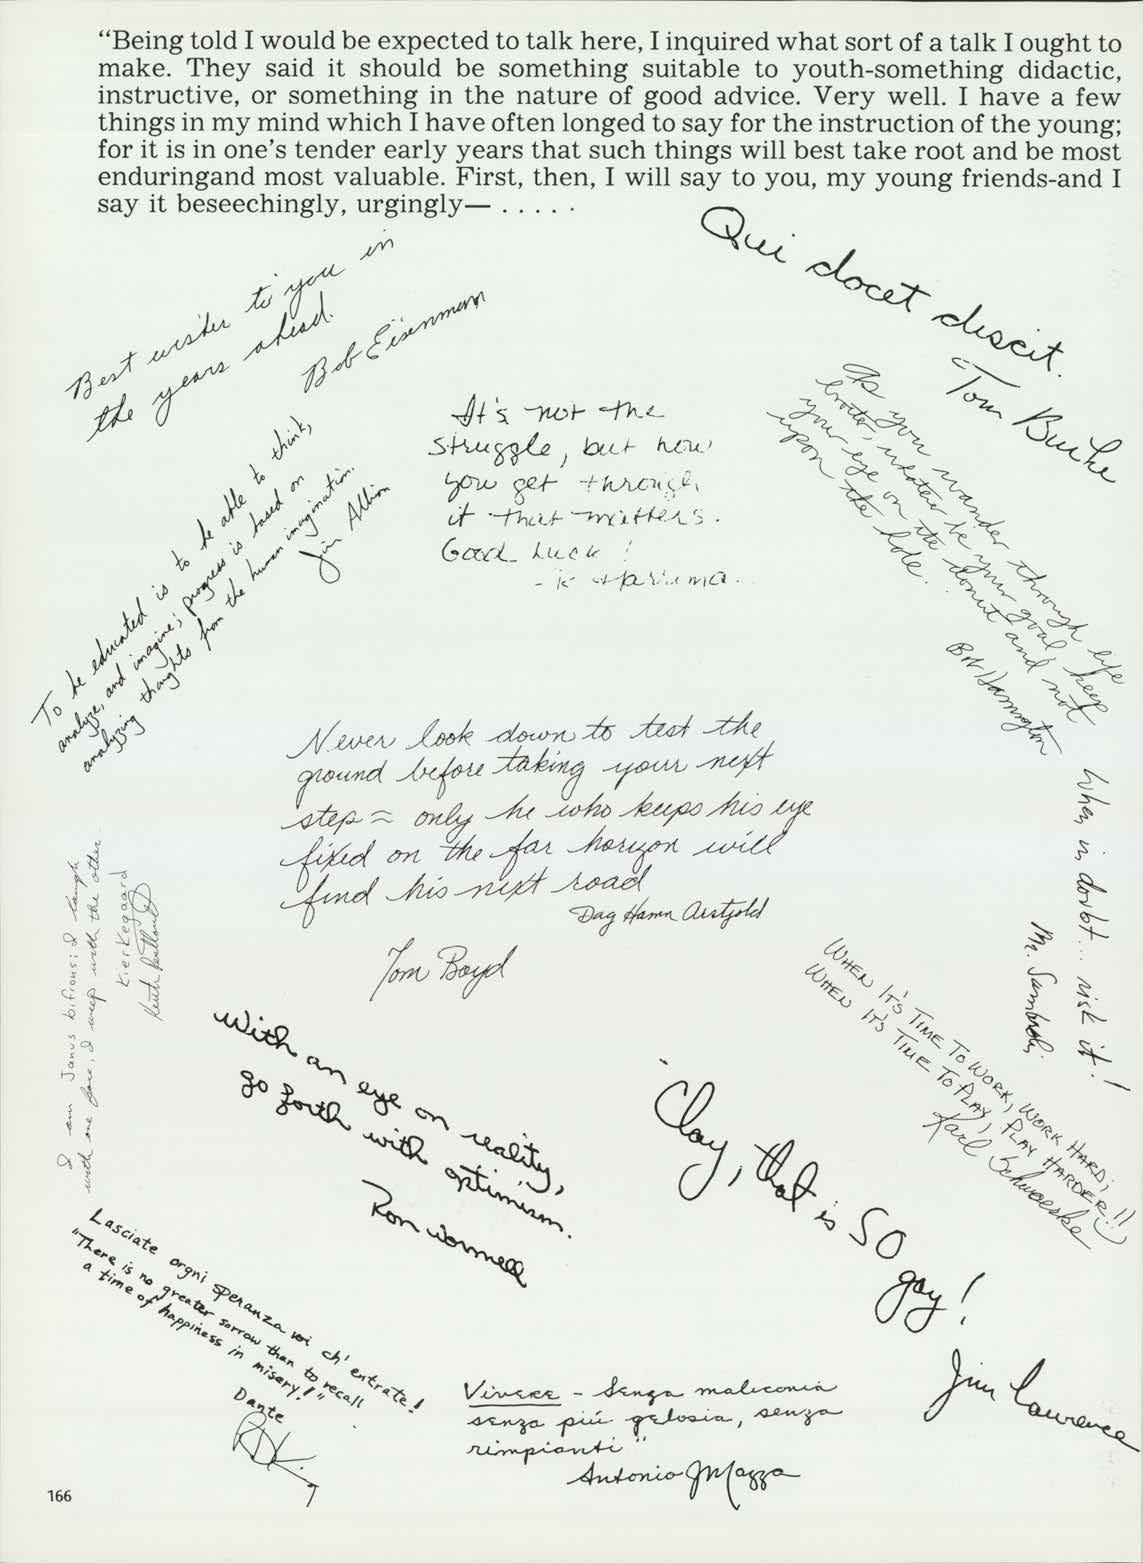 “Being told I would be expected to talk here, I inquired what sort of a talk I ought to
make. They said it should be something suitable to youth-something didactic,
instructive, or something in the nature of good advice. Very well. I have a few
things in my mind which I have often longed to say for the instruction of the young;
for it is in one’s tender early years that such things will best take root and be most
enduringand most valuable. First, then, I will say to you, my young friends-and I
say it beseechingly, urgingly— . . . . .
Qui docet discit.
Tom Burke
Best wishes to you in
the years ahead.
Bob Eisenmann
It's not the
struggle, but how
you get through
it that matters.
Good Luck!
As you wander through life
brother, whatever be your goal, keep
your eye on the donut and not
upon the hole.
Bob Harrington
To be educated is to be able to think,
analyze, and imagine; progress is based on
analyzing thoughts from the human imagination.
Jim Albion
Never look down to test the
ground before taking your next
step = only he who keeps his eye
fixed on the far horizon will
find his next road
Dag Hamn arstjold
Tom Boyd
When in doubt... risk it!
Mr.
I am Janus bifrons: I laugh
with one face, I weep with the other.
Kierkegaard
Keith
WHEN IT'S TIME TO WORK, WORK HARD;
WHEN IT'S TIME TO PLAY, PLAY HARDER!!
Karl
With an eye on reality,
go forth with optimism.
Ron Wormell
Clay, that is SO
gay!
Jim Lawrence
Lasciate orgni speranza voi ch' entrate!
"There is no greater sorrow than to recall
a time of happiness in misery!"
Dante
Vivere - Senza maliconia
senza piú gelosia, senza
rimpianti"
Antonio J Mazza
166